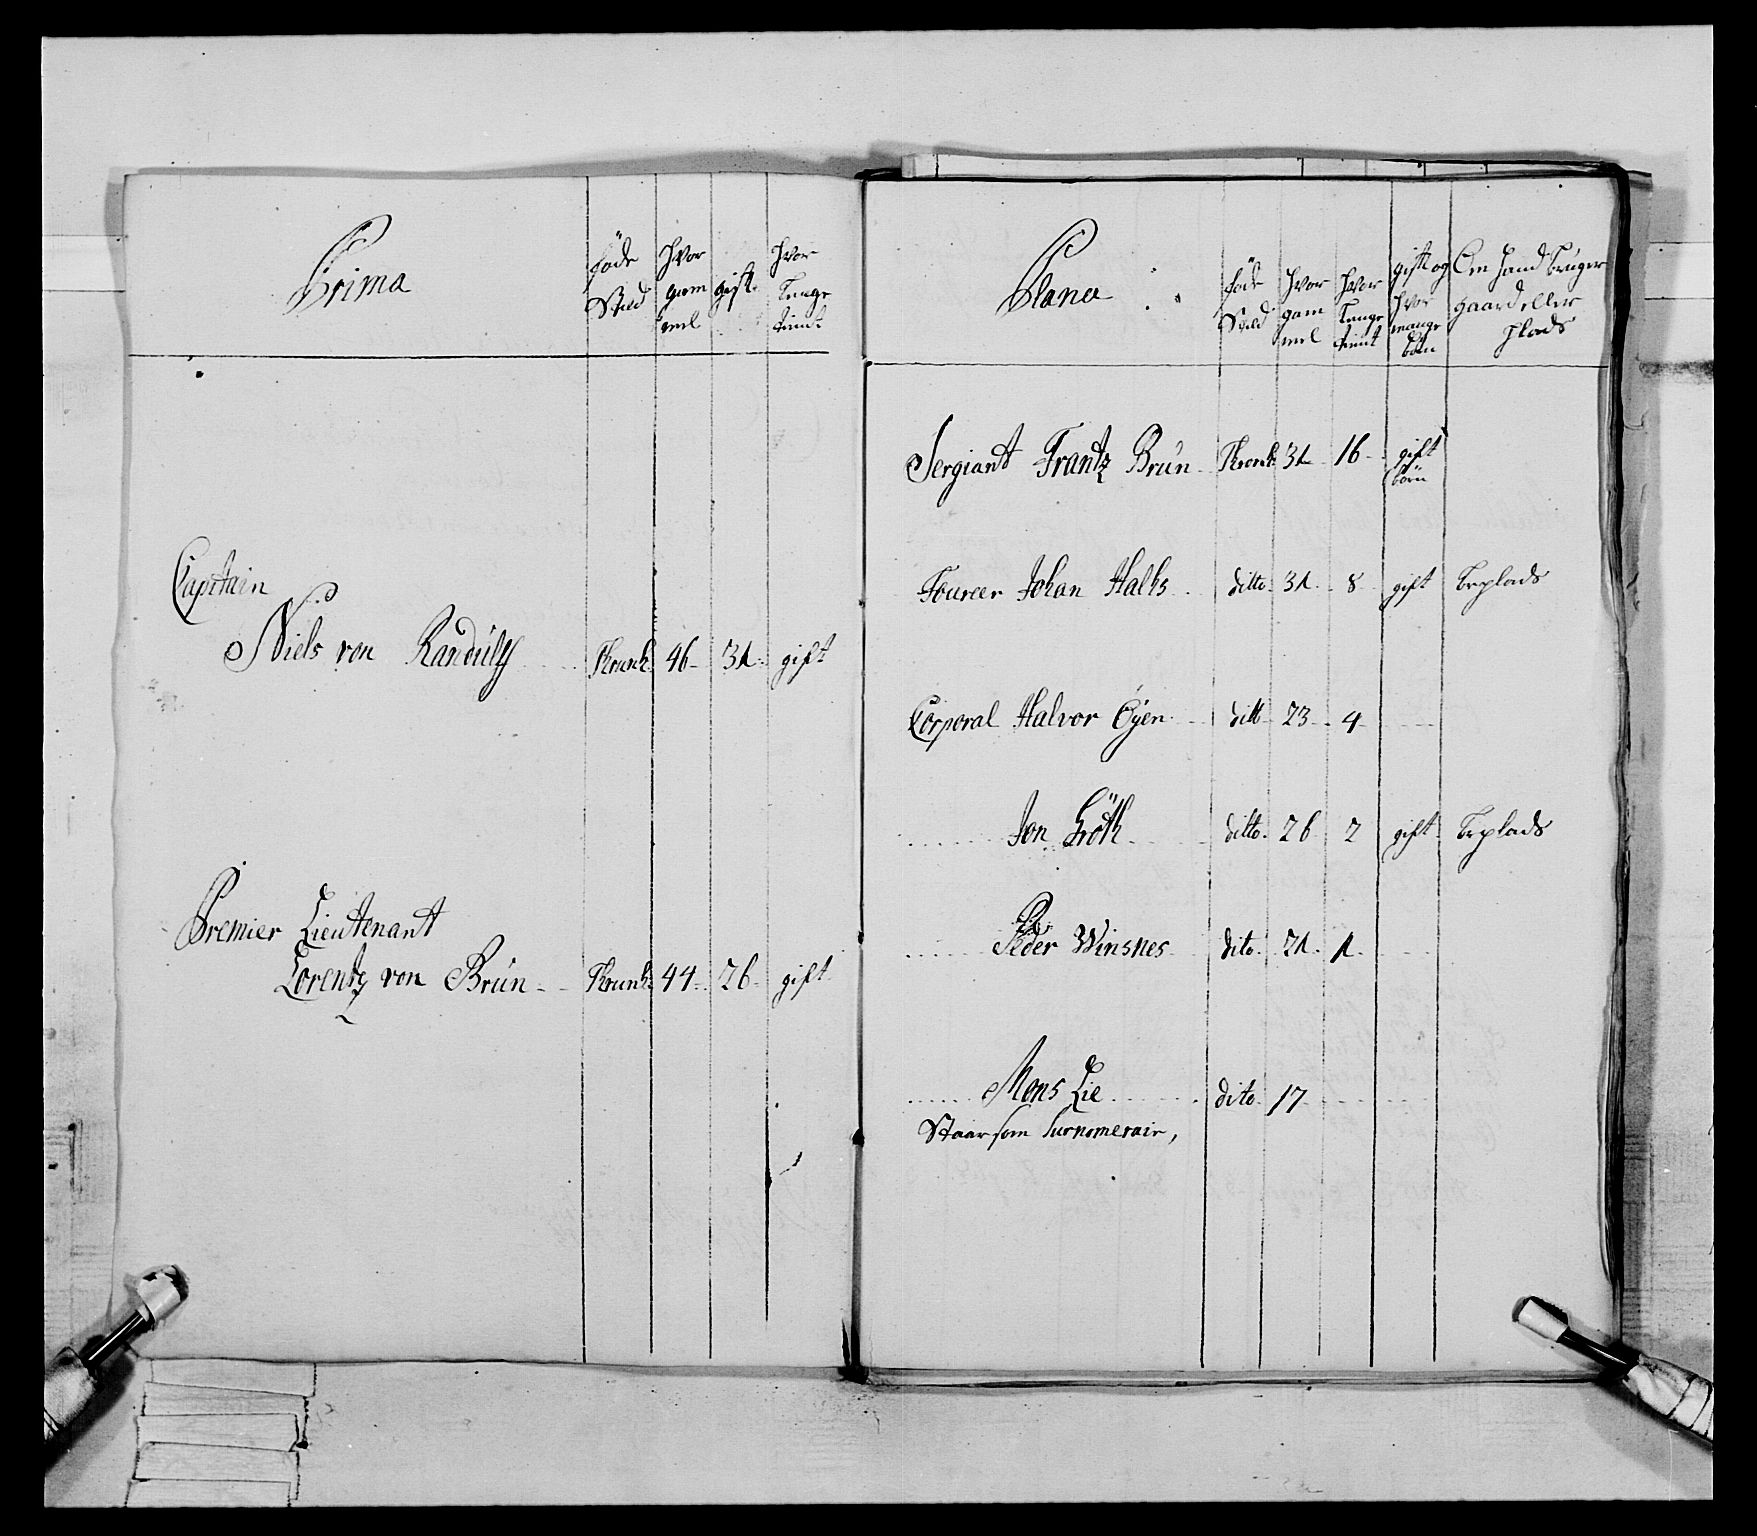 Prima
föde Stæd
Hvor gam mel
gift.
Hvor Lenge tient
Capitain
Niels von Randulff Thrunh. 46 31 gift
Premier Lieutenant
Lorentz von Brün Thrunh. 44 26 gift
Plana
föde Stæd
Hvor gam mel
Hvor Lenge tient
gift og Hvor mange börn
Om Hand bruger gaard eller Plads
Sergiant Frantz Brün Thrunh. 31 16 gift
börn
Foureer Johan Halhs ditto 31 8 gift brplads
Corporal Halvor Öyen ditto 23 4
Jon Gröth ditto 26 2 gift brplads
Peder Winsnes dito 21 1
Mons Lie dito 17
Staar som Surnomerair,